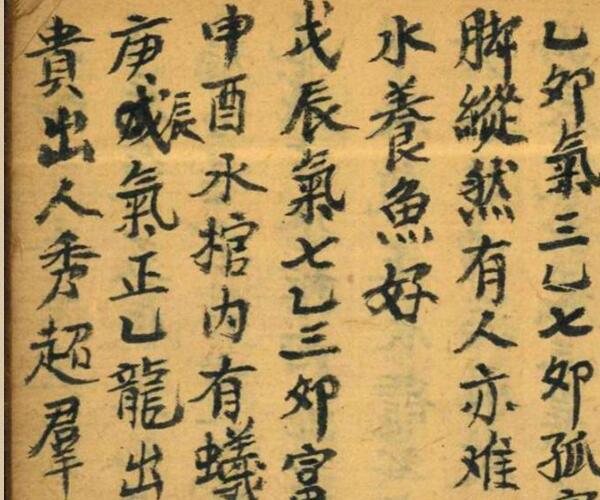 乙卯氣三乙七卯孤
脚縱然有人亦难
水養魚好
戊辰氣七乙三卯富
申酉水棺内有蟻
庚辰氣正乙龍出
貴出人秀超羣